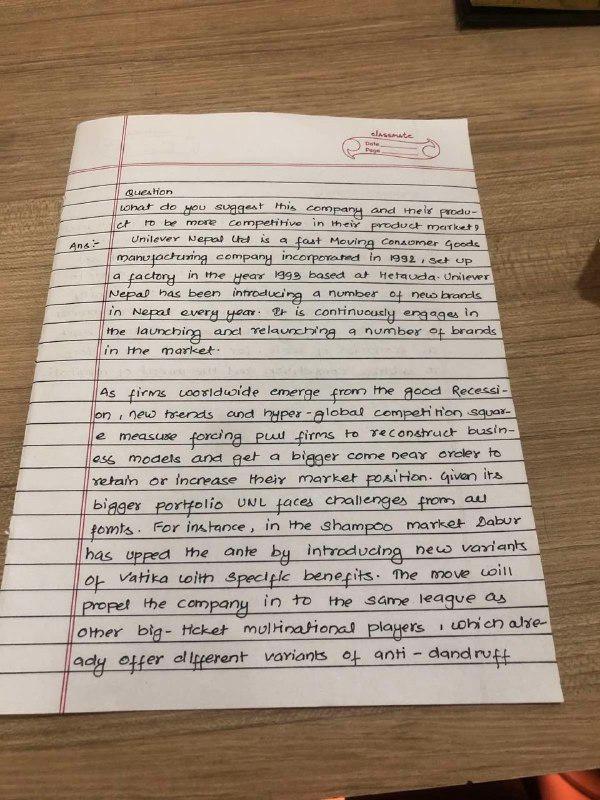 classmate
Date
Page
Question
what do you suggest this company and their produ-
ct to be more competitive in their product market?
Ans:- Unilever Nepal Ltd is a fast Moving Consumer Goods
manufacturing company incorporated in 1992, set up
a factory in the year 1993 based at Hetauda. Unilever
Nepal has been introducing a number of new brands
in Nepal every year. It is continuously engages in
the launching and relaunching a number of brands
in the market.
As firms worldwide emerge from the good Recessi-
on, new trends and hyper-global competition squar-
e measure forcing firms to reconstruct busin-
ess models and get a bigger come near order to
retain or increase their market position. Given its
bigger portfolio UNL faces challenges from all
fornts. For instance, in the shampoo market Dabur
has upped the ante by introducing new variants
of Vatika with specific benefits. The move will
propel the company in to the same league as
other big-ticket multinational players, which alre-
ady offer different variants of anti-dandruff